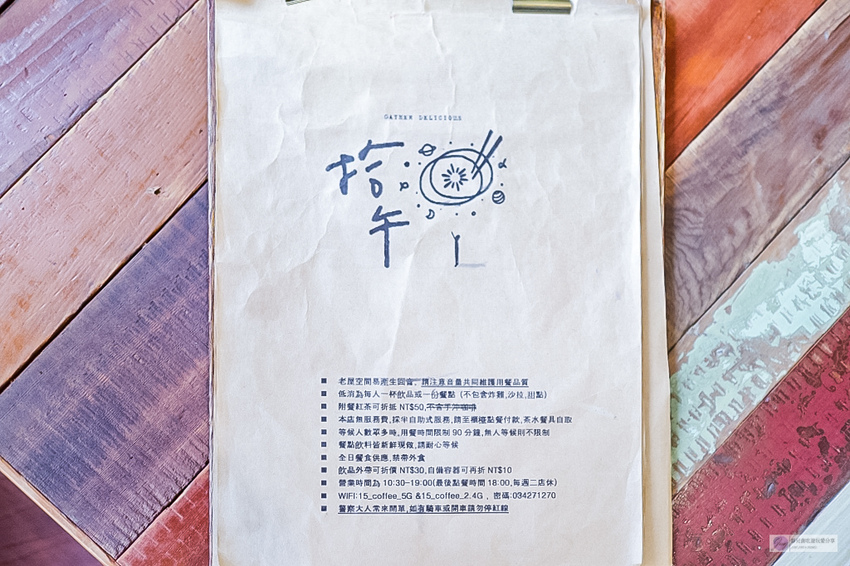 GATHER DELICIOUS
拾
午
■ 老屋空間易產生回音，請注意音量共同維護用餐品質
■ 低消為每人一杯飲品或一份餐點 (不包含炸雞,沙拉,甜點)
■ 附餐紅茶可折抵 NT$50,不含手沖咖啡
■ 本店無服務費,採半自助式服務,請至櫃檯點餐付款,茶水餐具自取
■ 等候人數眾多時,用餐時間限制 90 分鐘,無人等候則不限制
■ 餐點飲料皆新鮮現做,請耐心等候
■ 全日餐食供應,禁帶外食
■ 飲品外帶可折價 NT$30,自備容器可再折 NT$10
■ 營業時間為 10:30-19:00(最後點餐時間 18:00,每週二店休)
■ WIFI:15_coffee_5G &15_coffee_2.4G 、密碼:034271270
■ 警察大人常來開單,如有騎車或開車請勿停紅線